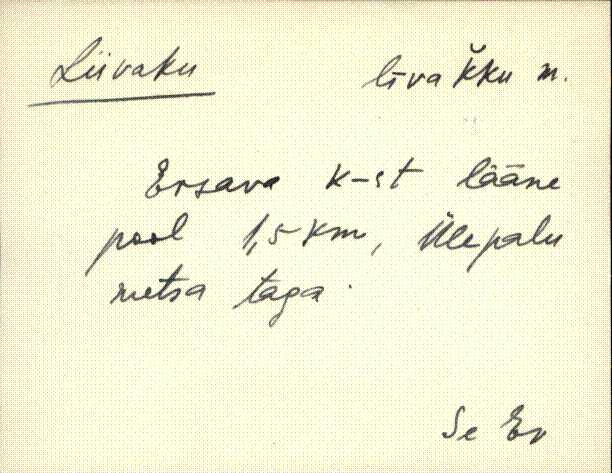 Liivaku līvak̆ku m.
Ersava k-st lääne
pool 1,5 km, Ülepalu
metsa taga.
Se Er